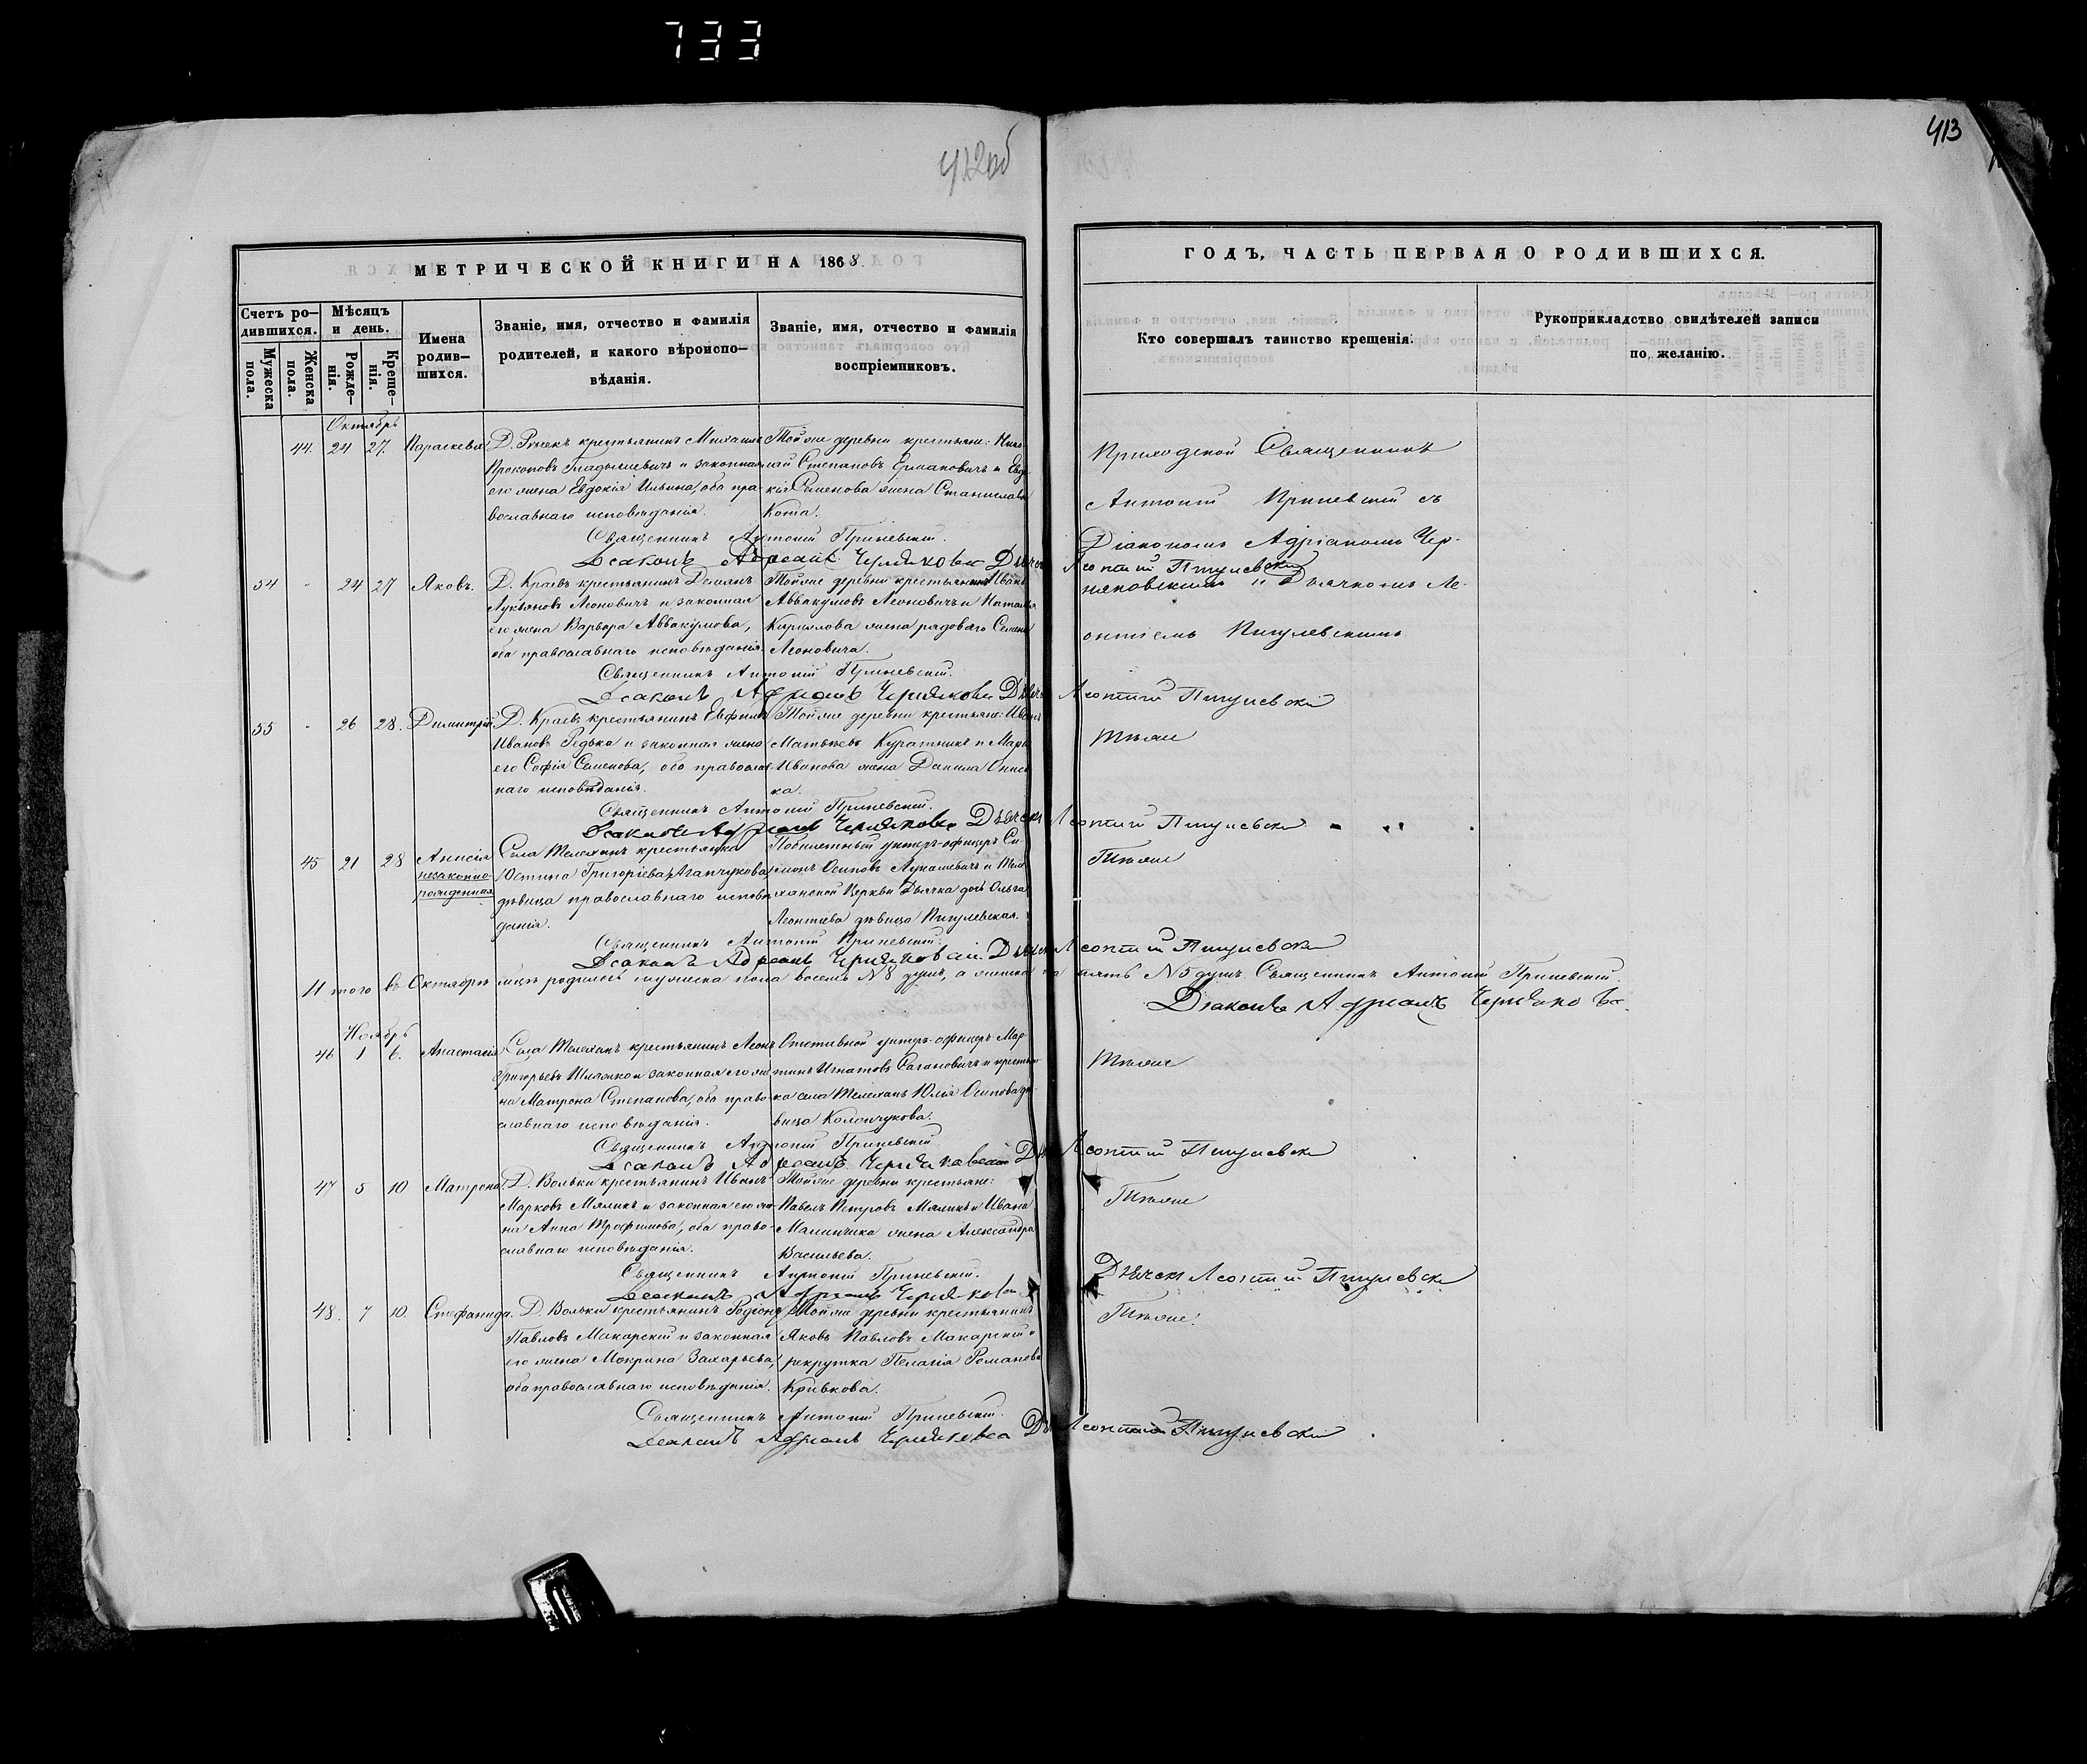 733
412об
413
МЕТРИЧЕСКОЙ КНИГИ НА 1868.
ГОДЪ, ЧАСТЬ ПЕРВАЯ О РОДИВШИХСЯ.
Счетъ ро-
дившихся.
Мужеска
пола.
Женска
пола.
Мѣсяцъ
и день.
Рожде-
нія.
Креще-
нія.
Имена
родив-
шихся.
Званіе, имя, отчество и фамилія
родителей, и какого вѣроиспо-
вѣданія.
Званіе, имя, отчество и фамилія
воспріемниковъ.
Кто совершалъ таинство крещенія.
Рукоприкладство свидѣтелей записи
по желанію.
Октябрь
44. 24 27. Параскева
Д. крестьянинъ Михаилъ
Прокоповъ и законная
его жена Евдокія Ильина, оба пра-
вославнаго исповѣданія.
Тойже деревни крестьяне: Нико-
лай Степановъ Ермаковичъ и Евдо-
кія Семенова жена Станислава
Кота.
Приходской Священникъ
Антоній съ
Діакономъ Адріаномъ Чер-
няковскимъ и Дьячкомъ Ле-
онтіемъ Пигулевскимъ
Священникъ Антоній
Діаконъ Адріанъ
54 - 24 27 Яковъ.
Д. Краевъ крестьянинъ Деміанъ
Лукьяновъ Леоновичъ и законная
его жена Варвора Аввакумова,
оба православнаго исповѣданія.
Тойже деревни крестьянинъ Иванъ
Аввакумовъ Леоновичъ и Наталья
Кирилова жена рядоваго Семена
Леоновича.
Священникъ Антоній
Діаконъ Адріанъ
Леонтій Пигулевскій
55 - 26 28. Димитрій
Д. Краевъ крестьянинъ Евфимъ
Ивановъ Редька и законная жена
его Софія Семенова, оба православ-
наго исповѣданія.
Тойже деревни крестьяне: Иванъ
Матвѣевъ и Марья
Иванова жена Данила Онис-
ка.
Тѣже
Священникъ Антоній
Діаконъ Адріанъ
Леонтій Пигулевскій
45 21 28 Анисія
незаконно-
рожденная
Села Телеханъ крестьянка
Юстина Григорьева
дѣвица православнаго исповѣ-
данія.
унтеръ-офицеръ Си-
монъ Осиповъ Лукашевичъ и Теле-
ханской Церкви Дьячка дочь Ольга
Леонтіева дѣвица Пигулевская.
Тѣже
Священникъ Антоній
Діаконъ Адріанъ
Леонтій Пигулевскій
Итого въ Октябрѣ мцѣ родилось мужеска пола восемь №8 душъ, а женска пять №5 душъ. Священникъ Антоній
Діаконъ Адріанъ
Ноябрь
46 1 6. Анастасія
Села Телеханъ крестьянинъ Леонъ
Григорьевъ и законная его же-
на Матрона Степанова, оба право-
славнаго исповѣданія.
Отставной унтеръ-офицеръ Мар-
тинъ Игнатовъ и крестьян-
ка села Телеханъ Юлія Осипова дѣ-
вица
Тѣже
Священникъ Антоній
Діаконъ Адріанъ
Леонтій Пигулевскій
47 5 10 Матрона
Д. Вольки крестьянинъ Иванъ
Марковъ Мяликъ и законная его же-
на Анна Трофимова, оба право-
славнаго исповѣданія.
Тойже деревни крестьяне:
Павелъ Петровъ Мяликъ и Ивана
жена Александра
Васильева.
Тѣже
Священникъ Антоній
Діаконъ Адріанъ
Дьячекъ Леонтій Пигулевскій
48. 7 10. Стефанида.
Д. Вольки крестьянинъ Родіонъ
Павловъ Макарскій и законная
его жена Мокрина Захарьева,
оба православнаго исповѣданія.
Тойже деревни крестьянинъ
Яковъ Павловъ Макарскій и
рекрутка Пелагія Романова
Кривкова.
Тѣже.
Священникъ Антоній
Діаконъ Адріанъ
Леонтій Пигулевскій